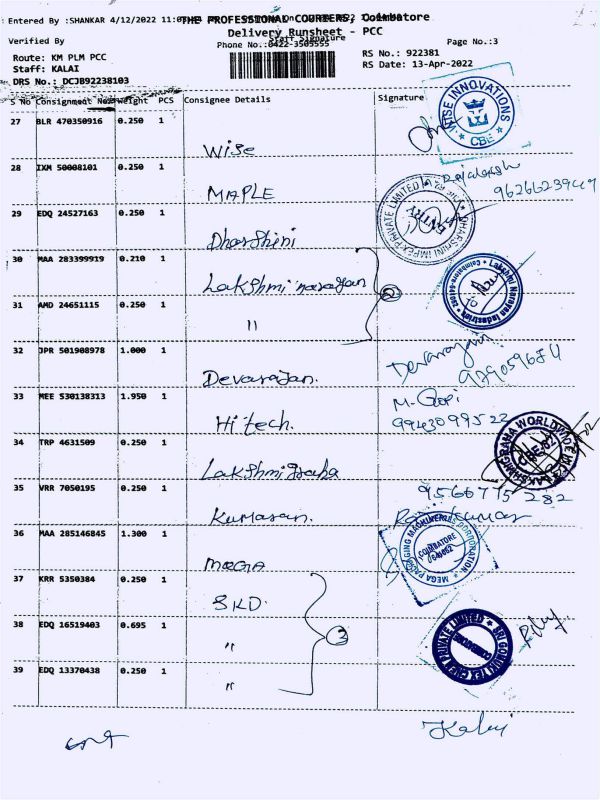 Entered By :SHANKAR 4/12/2022
THE PROFESSIONAL COURIERS, Coimbatore
Delivery Runsheet - PCC
Verified By
Staff Signature
Phone No.:0422-3505555
Page No.:3
Route: KM PLM PCC
RS No.: 922381
Staff: KALAI
RS Date: 13-Apr-2022
DRS No.: DCJB92238103
S No Consignment No Weight PCS Consignee Details Signature
27 BLR 470350916 0.250 1 Wise
WISE INNOVATIONS * CBE *
28 IXM 50008101 0.250 1 MAPLE
Rajalakshmi
29 EDQ 24527163 0.250 1 Dharshini
DHARSHINI IMPEX PRIVATE LIMITED ENTRY
30 MAA 283399919 0.210 1 Lakshmi narayan
2
Lakshmi Narayan Industries
31 AMD 24651115 0.250 1 "
32 JPR 501908978 1.000 1 Devarajan.
Devarajan
33 MEE 530138313 1.950 1 Hitech.
M. Gopi
9943099522
34 TRP 4631509 0.250 1 Lakshmigraha
LAKSHMIGRAHA WORLDWIDE
35 VRR 7050195 0.250 1 Kumaran.
9566775282
36 MAA 285146845 1.300 1 MEGA
MEGA PACKAGING MACHINERIES CORPORATION
COIMBATORE
37 KRR 5350384 0.250 1 SKD.
38 EDQ 16519403 0.695 1 "
3
39 EDQ 13370438 0.250 1 "
Kalai